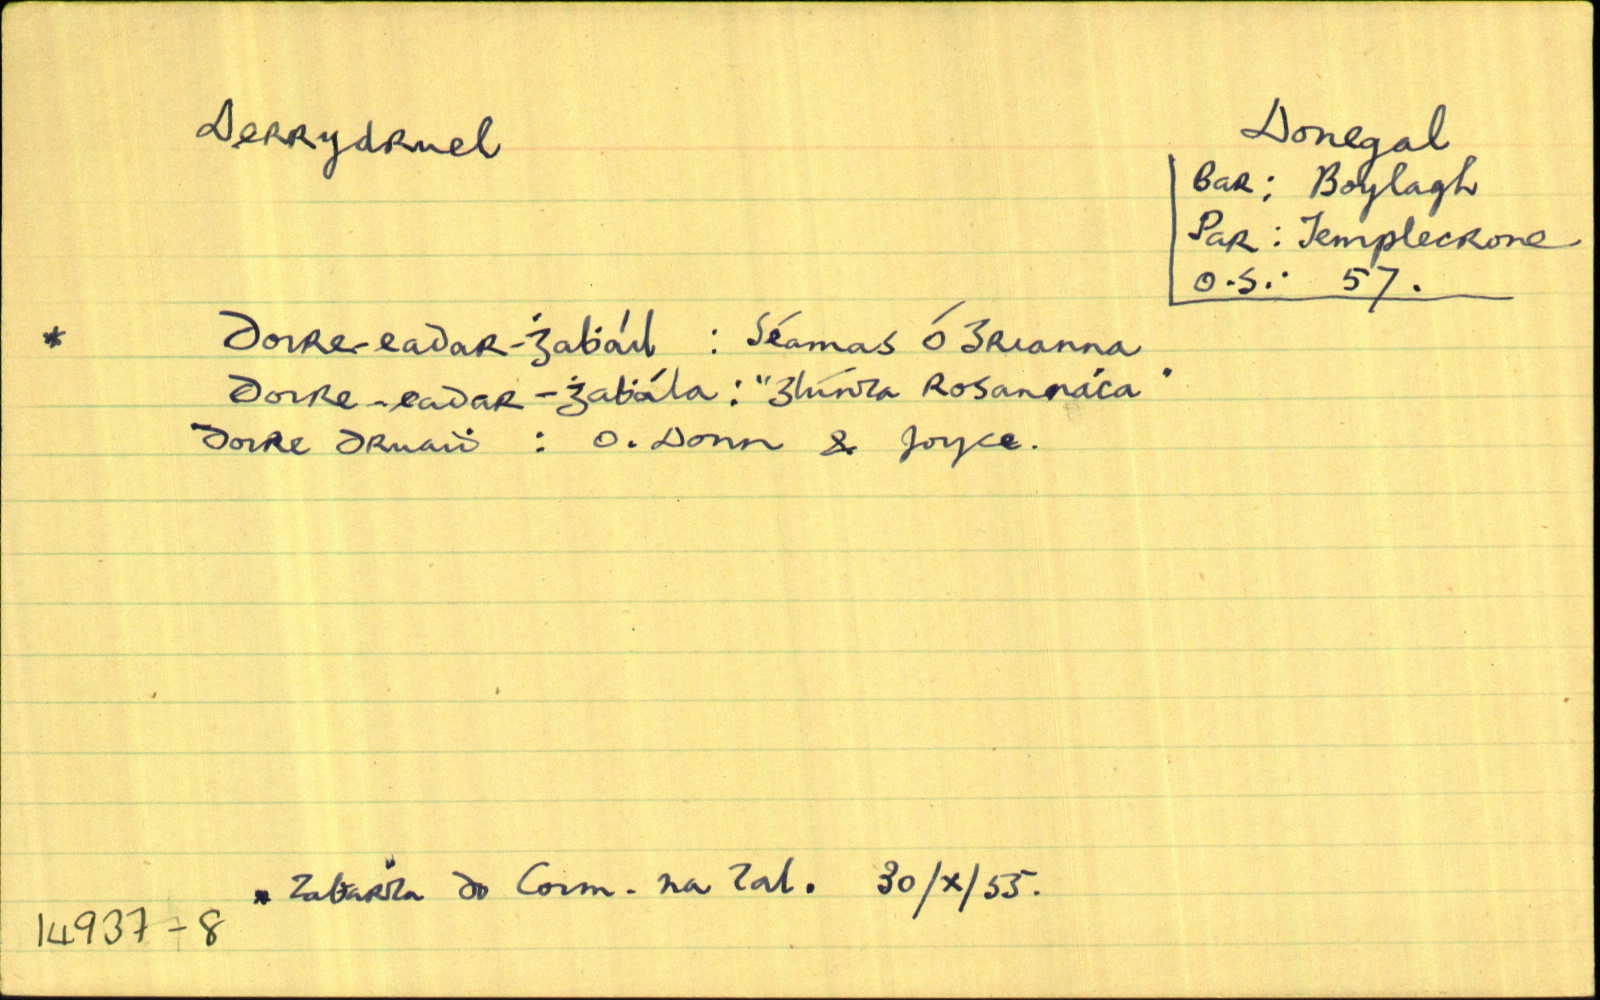 Derrydruel
Donegal
Bar: Boylagh
Par: Templecrone
O.S. 57.
* Doire-eadar-ġaḃáil : Séamas Ó Grianna
Doire-eadar-ġaḃála : "Glúnta Rosannaċa"
Doire Druaiḋ : O. Donn & Joyce.
* Taḃarṫa do Coim. na Tal. 30/X/55.
14937-8